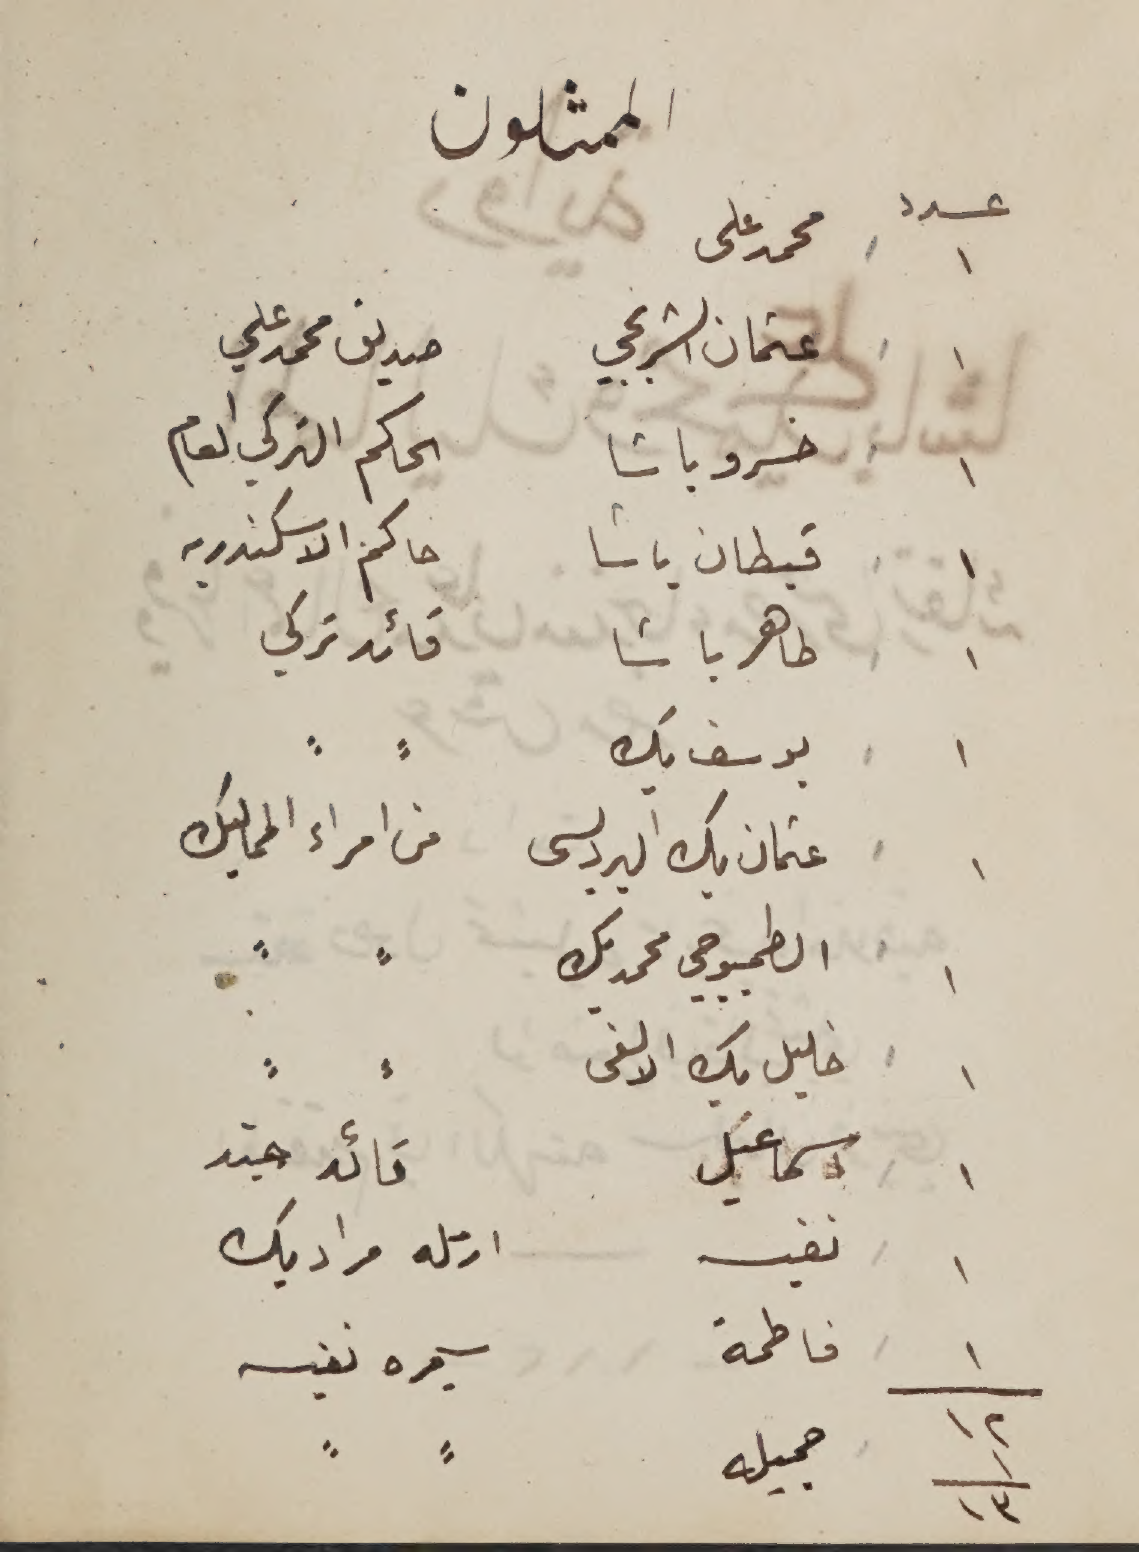 الممثلون
عدد
١ محمد على
١ عثمان الشربجي صديق محمد علي
١ خسرو باشا الحاكم التركي العام
١ قبطان باشا حاكم الاسكندريه
١ طاهر باشا قائد تركي
١ يوسف بك " "
١ عثمان بك البرديسى من امراء المماليك
١ الطمبوجي محمد بك " "
١ خليل بك الالفى " "
١ اسماعيل قائد جند
١ نفيسه ارمله مراد بك
١ فاطمة سميره نفيسه
١٢
١ جميله " "
١٣